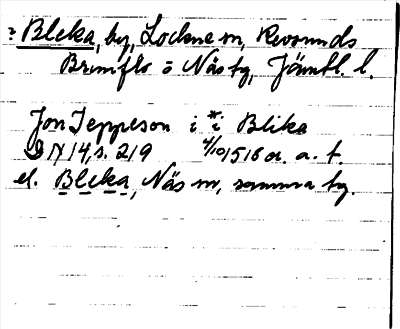 ? Bleka, by, Lockne sn, Revsunds
Brunflo o Näs tg, Jämtl. l.
Jon Jeppeson i * i Blika
DN 14, s. 219 4/10 1516 a. a. t.
el. Bleka, Näs sn, samma tg.